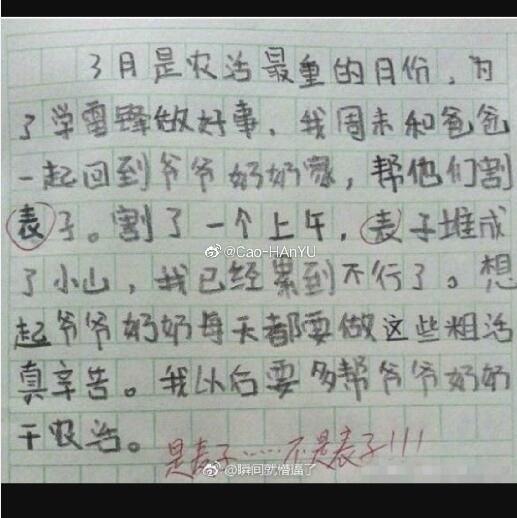 3月是农活最重的月份，为
了学雷锋做好事，我周末和爸爸
一起回到爷爷奶奶家，帮他们割
表子。割了一个上午，表子堆成
@Cao-HAnYU
了小山，我已经累到不行了。想
起爷爷奶奶每天都要做这些粗活
真辛苦。我以后要多帮爷爷奶奶
干农活。
是麦子……不是表子!!!
@瞬间就懵逼了